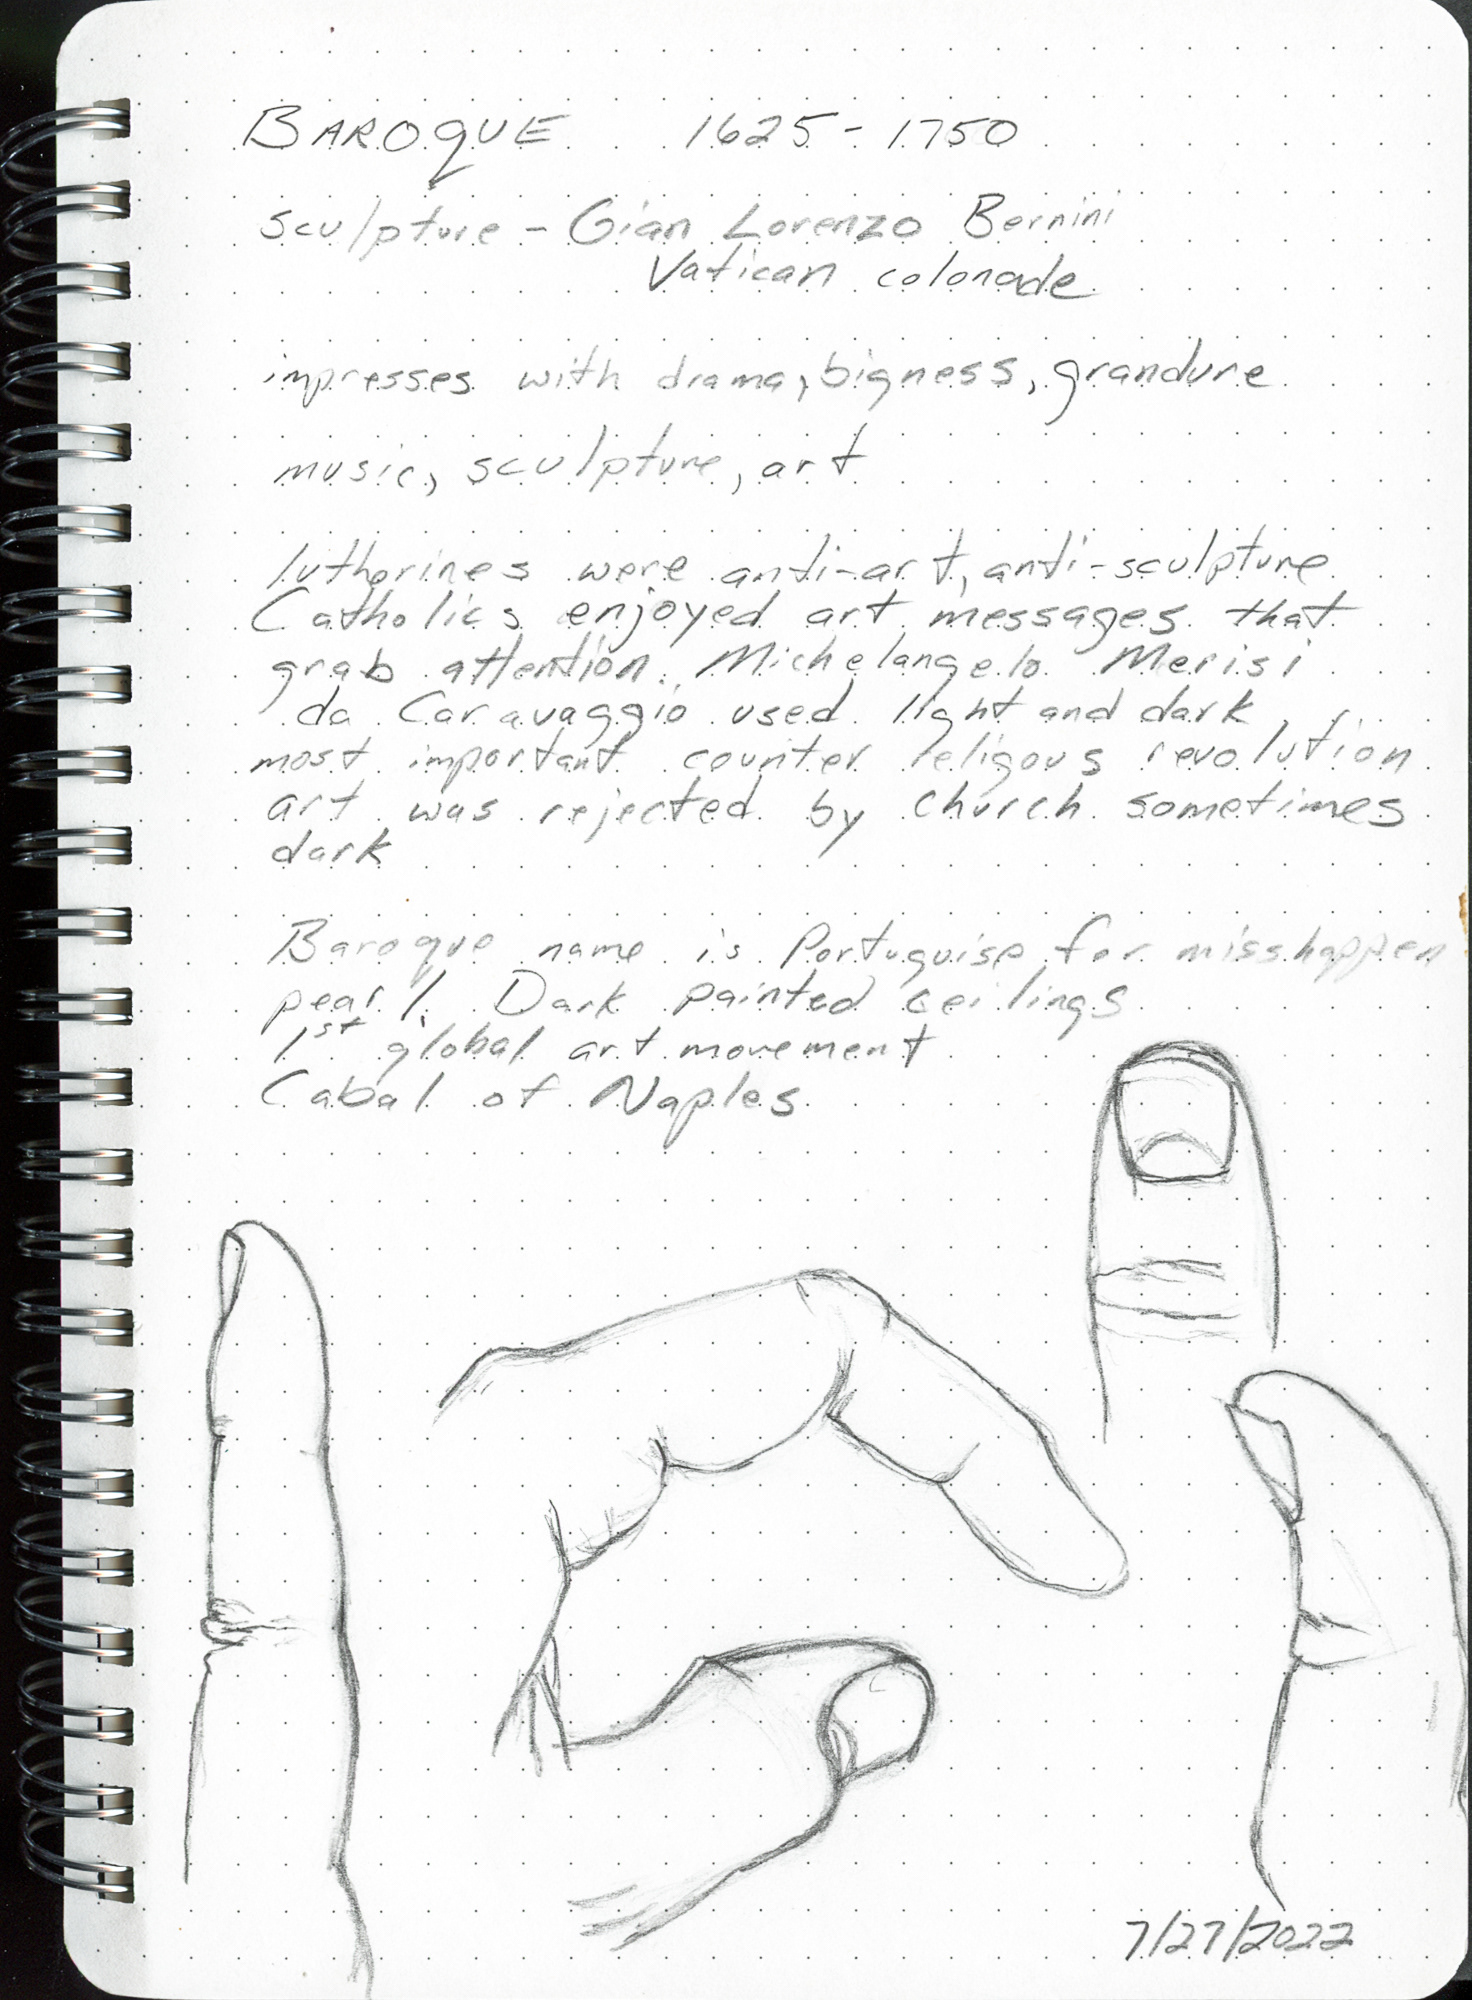 BAROQUE 1625-1750
sculpture - Gian Lorenzo Bernini
Vatican colonade
impresses with drama, bigness, grandure
music, sculpture, art
lutherines were anti-art, anti-sculpture
Catholics enjoyed art messages that
grab attention. Michelangelo Merisi
da Caravaggio used light and dark,
most important counter religous revolution
art was rejected by church sometimes
dark
Baroque name is Portuguise for misshappen
pearl. Dark painted ceilings
1st global art movement
Cabal of Naples
7/27/2022